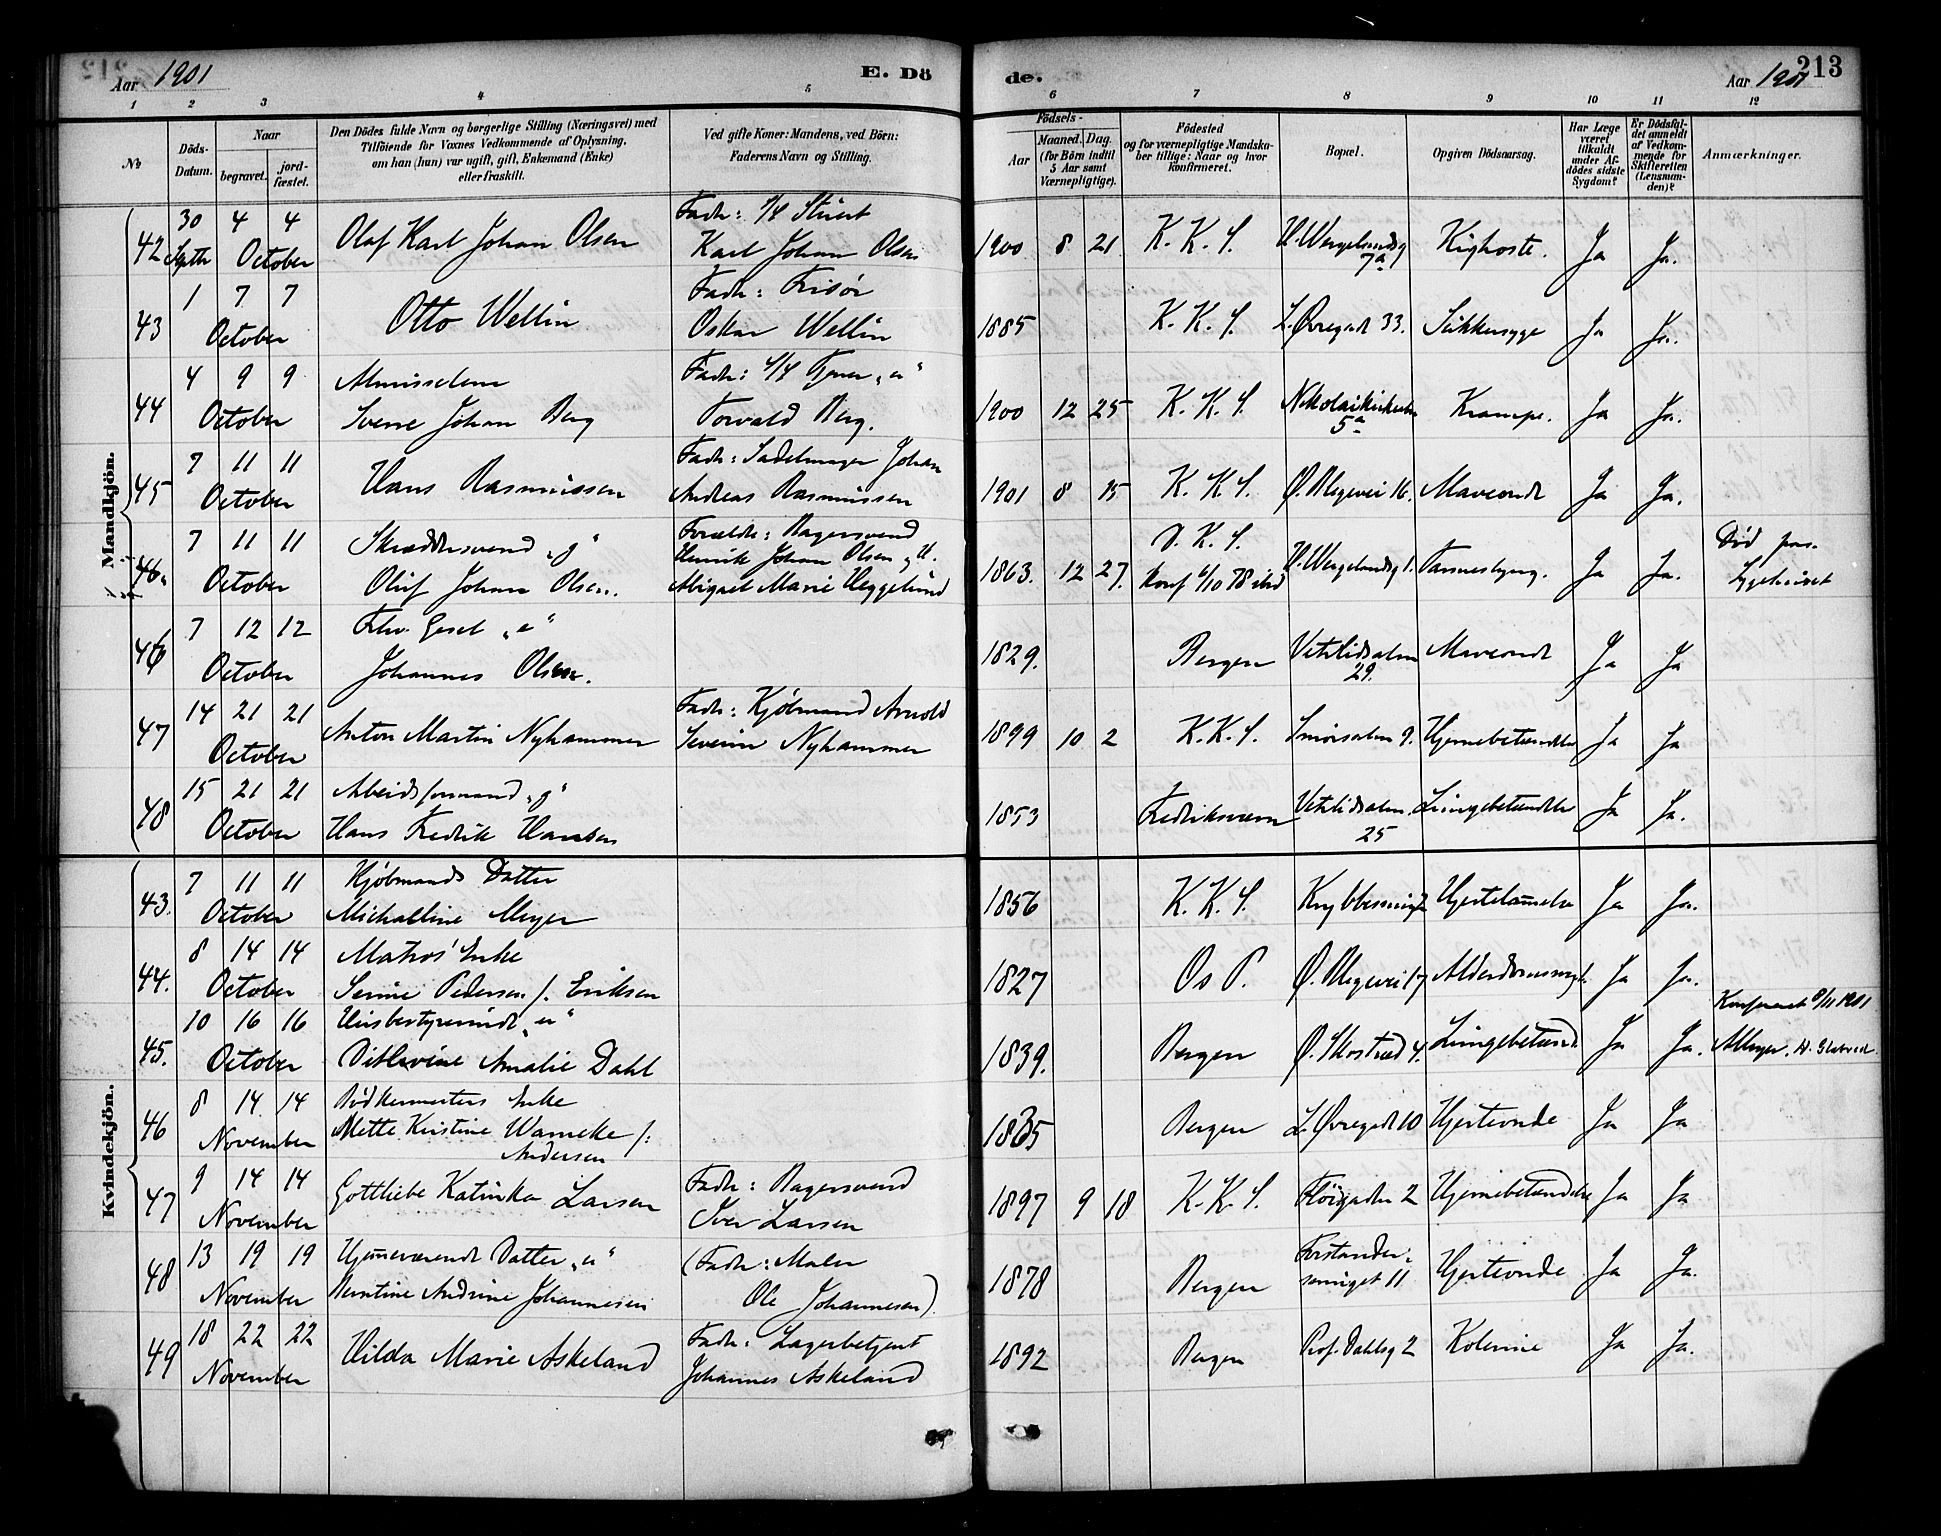 Aar 1901
E. Dö
de.
Aar 1901
213
1 2 3 4 5 6 7 8 9 10 11 12
№
Döds-Datum.
Naar
begravet.
jord-fæstet.
Den Dödes fulde Navn og borgerlige Stilling (Næringsvei) med
Tilföiende for Voxnes Vedkommende af Oplysning,
om han (hun) var ugift, gift, Enkemand (Enke)
eller fraskilt.
Ved gifte Koner: Mandens, ved Börn:
Faderens Navn og Stilling.
Födsels-
Aar
Maaned. Dag.
(for Börn indtil
5 Aar samt
Værnepligtige).
Födested
og for værnepligtige Mandska-
ber tillige: Naar og hvor
konfirmeret.
Bopæl.
Opgiven Dödsaarsag.
Har Læge
været
tilkaldt
under Af-
dödes sidste
Sygdom?
Er Dödsfal-
det anmeldt
af Vedkom-
mende for
Skifteretten
(Lensman-
den)?
Anmærkninger.
Mandkjön.
42 30 Septbr 4 4 October Olaf Karl Johan Olsen Fader: Karl Johan Olsen 1900 8 21 K. K. S. H. Wergelandsg 7a Kighoste. Ja Ja.
43 1 7 7 October Otto Wellin Fader: Frisör Oskar Wellin 1885 K. K. S. L. Øvregade 33. Sukkersyge Ja Ja.
44 4 9 9 October Almisselem Sverre Johan Berg Fader: Torvald Berg. 1900 12 25 K. K. S. 5a Krampe. Ja Ja.
45 7 11 11 October Hans Rasmussen Fader: Sadelmager Johan Andreas Rasmussen 1901 8 15 K. K. S. Ø. Blegevei 16. Maveondt Ja Ja.
46 7 11 11 October Skræddersvend „g“ Oluf Johan Olsen. Forældre: Bagersvend Henrik Johan Olsen Abigael Marie Heggelund 1863. 12 27. D. K. S. Konf 6/10 78 ibid H. Wergelandsg 1. Ja Ja. Död paa Sygehuset
46 7 12 12 October „e“ Johannes Olsen. 1829. Bergen Vetrlidsalm 29. Maveondt Ja Ja
47 14 21 21 October Anton Martin Nyhammer Fader: Kjöbmand Arnold Severin Nyhammer 1899 10 2 K. K. S. Smörsalm 9. Hjernebetændelse Ja Ja
48 15 21 21 October Arbeidsformand „g“ Hans Fredrik Hansen 1853 Fredriksværn Vetrlidsalm. 25 Lungebetændelse Ja Ja.
Kvindekjön.
43. 7 11 11 October Kjöbmands Datter Michaeline Meyer 1856 K. K. S. Hjertelammelse Ja Ja.
44. 8 14 14 October Matros' Enke Serine Pedersen f. Eriksen 1827 Os P. Ø. Blegevei 17 Ja Ja.
45. 10 16 16 October Husbestyrerinde „u“ Ditlevine Amalie Dahl 1839. Bergen Ø. Skostræd 4. Lungebetænd. Ja Ja. Konfereret 8/11 1901
46 8 14 14 November Bödkermesters Enke Mette Kristine Warneke f: Andersen 1835 Bergen L. Øvregade 10 Hjerteonde Ja Ja
47 9 14 14 November Gottliebe Katinka Larsen Fader: Bagersvend Iver Larsen 1897 9 18 K. K. S. Flöigaden 2 Hjernebetændelse Ja Ja
48 13 19 19 November Hjemmeværende Datter „u“ Berntine Andrine Johannesen (Fader: Maler Ole Johannesen). 1878 Bergen Forstander-smuget 11 Hjerteonde Ja Ja.
49 18 22 22 November Hilda Marie Askeland Fader: Lagerbetjent Johannes Askeland 1892 Bergen Prof. Dahlsg 2 Kolerine Ja Ja.